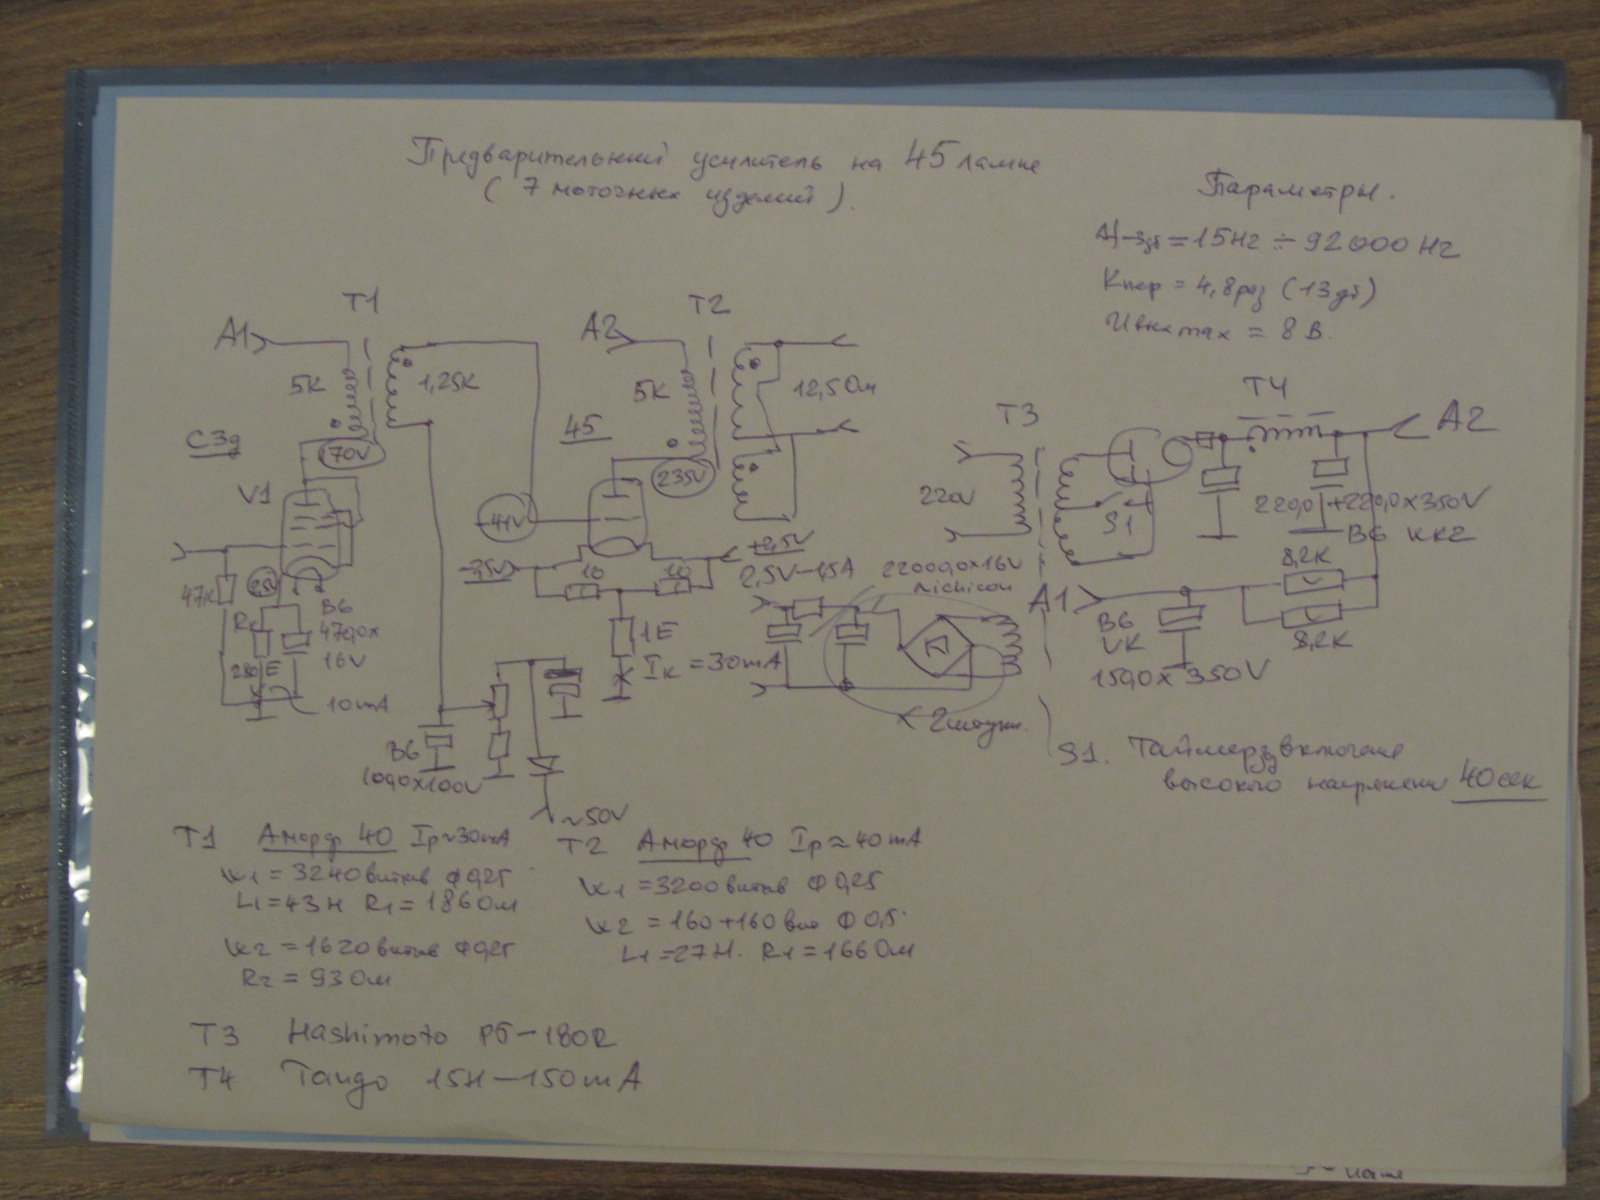 Предварительный усилитель на 45 лампе
( 7 моточных изделий ).
Параметры.
Δf-3дб = 15Hz ÷ 92000 Hz
Kпер = 4,8 раз (13дб)
Uвых max = 8 В.
T1
A1
5K
1,25K
С3g
170V
V1
47K
Rк
B6
470,0x
16V
10mA
B6
100,0x100V
~50V
T2
A2
5K
12,5 Ом
45
235V
-41V
-2,5V
+2,5V
10
10
1E
Iк = 30mA
2,5V-1,5A
22000,0x16V
Nichicon
x 2 штуки.
T3
220V
S1
T4
A2
220,0+220,0x350V
B6 KK2
8,2K
8,2K
A1
B6
VK
150,0x350V
S1. Таймер включения
высокого напряжения 40 сек
T1 Аморф 40 Ip~30mA
W1 = 3240 витков Ф 0,25
L1=43H R1=186 Ом
W2 = 1620 витков Ф 0,25
R2 = 93 Ом
T2 Аморф 40 Ip≈40mA
W1 = 3200 витков Ф 0,25
W2 = 160+160 вит Ф 0,5
L1=27H. R1=166 Ом
T3 Hashimoto PT-180R
T4 Tango 15H-150mA